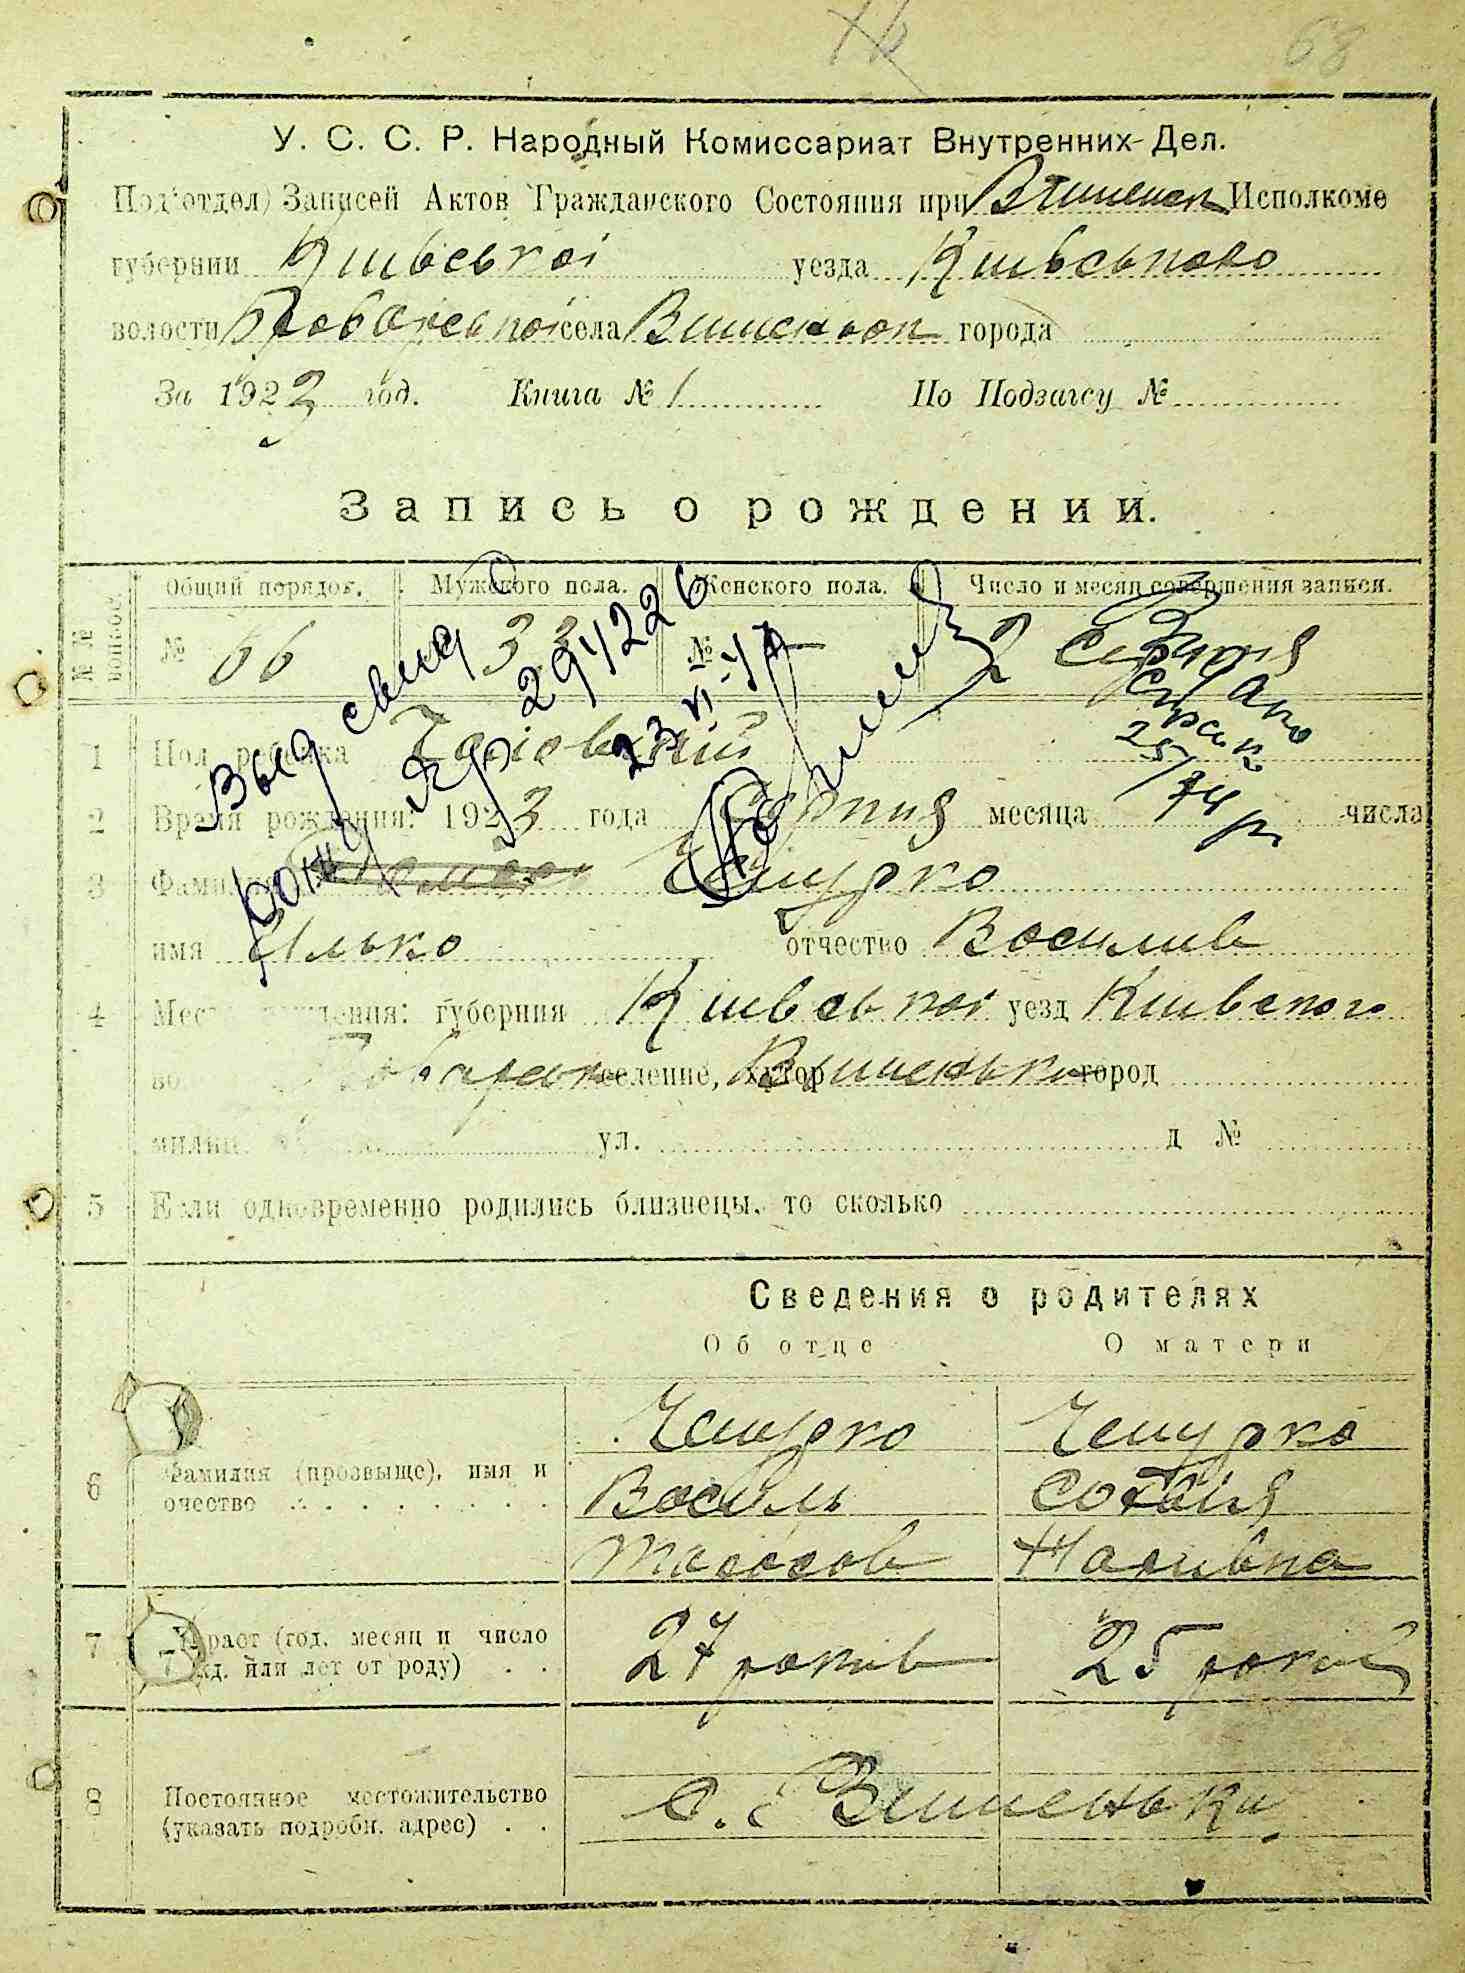 68
У. С. С. Р. Народный Комиссариат Внутренних Дел.
Под'отдел) Записей Актов Гражданского Состояния при Вишеньк Исполкоме
губернии Київської уезда Київського
волости села Вишеньок города
За 1923 год. Книга № 1 По Подзагсу №
Запись о рождении.
№№ вопрос. Общий порядов. Мужского пола. Женского пола. Число и месяц совершения записи.
№ 66 33 № — 2 Серпня
Выд свид
294226
23 VI-47
25/
74 р
1 Пол ребенка Чоловічий
2 Время рождения: 1923 года Серпня месяца числа
3 Фамилия Чемурко
имя Ілько отчество Василів
4 Место рождения: губерния Київської уезд Київского
во селение, хутор Вишеньки город
милиц. ул. д №
5 Если одновременно родились близнецы, то сколько
Сведения о родителях
Об отце О матери
6 Фамилия (прозвыще), имя и очество
Чемурко Чемурко
Василь Софія
Тарасов
7 Возраст (год, месяц и число рожд. или лет от роду)
27 років 25 років
8 Постоянное местожительство (указать подробн. адрес)
с. Вишеньки